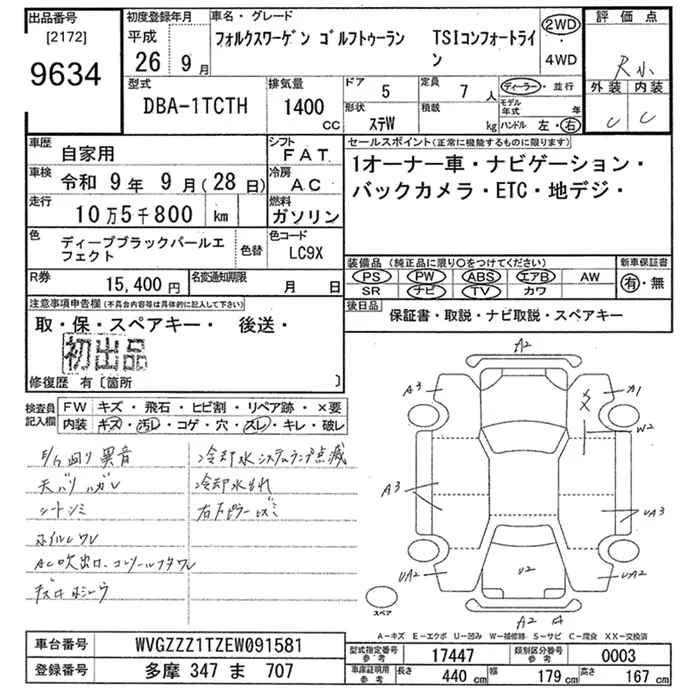 出品番号
[2172]
9634
初度登録年月
平成
26年 9月
車名・グレード
フォルクスワーゲン ゴルフトゥーラン TSIコンフォートライン
2WD
・
4WD
評価点
R小
外装 内装
C C
型式
DBA-1TCTH
排気量
1400
CC
ドア
5
定員
7人
ディーラー・並行
モデル年式 年
形状
ステW
積載
kg
ハンドル 左・右
車歴
自家用
シフト
FAT
車検
令和 9年 9月(28日)
冷房
AC
走行
10万5千800 km
燃料
ガソリン
セールスポイント(正常に機能するものに限ります)
1オーナー車・ナビゲーション・
バックカメラ・ETC・地デジ・
色
ディープブラックパールエフェクト
色替
色コード
LC9X
装備品(純正品に限り〇をつけてください)
PS PW ABS エアB AW
SR ナビ TV カワ
新車保証書
有・無
R券
15,400円
名変通知期限
月 日
後日品
保証書・取説・ナビ取説・スペアキー
注意事項申告欄(不具合内容等は具体的に記入して下さい)
取・保・スペアキー・ 後送・
初出品
修復歴 有〔箇所 〕
検査員記入欄
FW キズ・飛石・ヒビ割・リペア跡・×要
内装 キズ・汚レ・コゲ・穴・ズレ・キレ・破レ
異音
天バリ ハガレ
シートシミ
ホイルワレ
AC吹出口、
冷却水システムランプ点滅
冷却水モレ
A2
A3
A1
W2
A3
UA3
UA2
U2
UA2
A2
スペア
A-キズ E-エクボ U-凹み W-補修跡 S-サビ C-腐食 XX-交換済
車台番号
WVGZZZ1TZEW091581
型式指定番号
参考
17447
類別区分番号
参考
0003
登録番号
多摩 347 ま 707
車庫証明用
参考
長さ
440 cm
幅
179 cm
高さ
167 cm